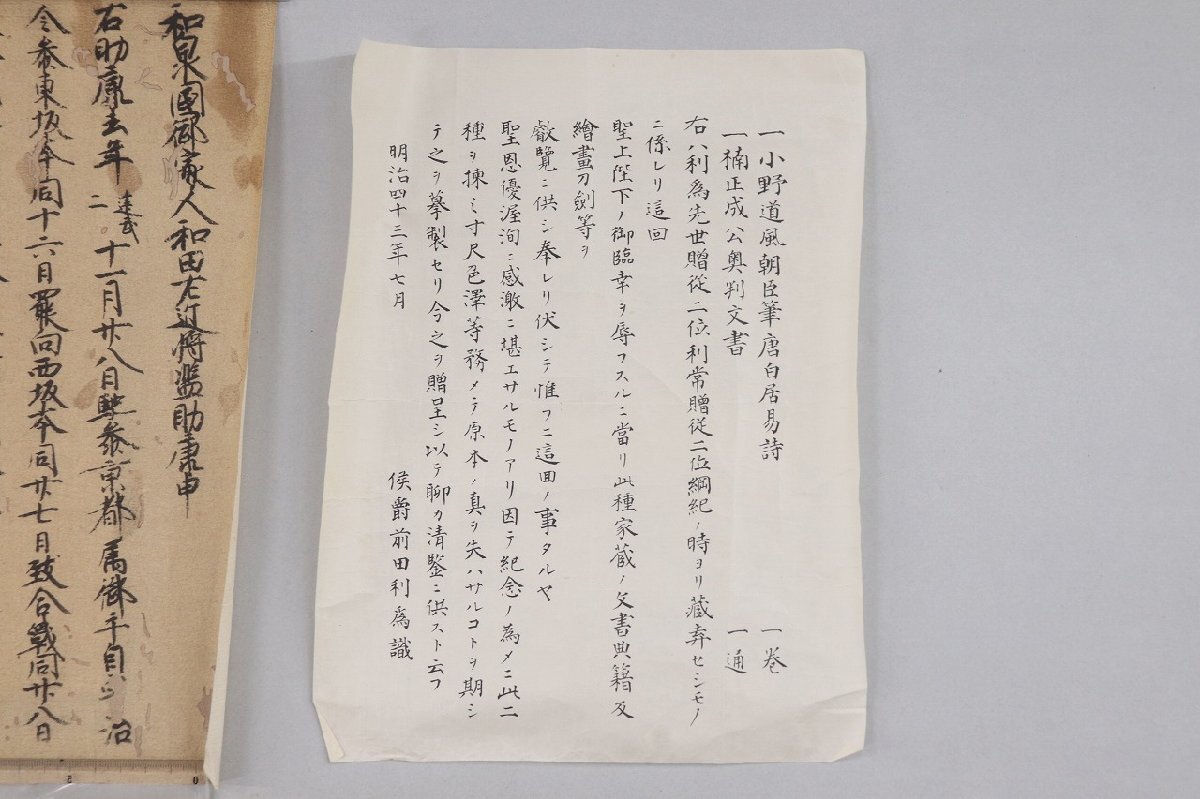 一小野道風朝臣筆唐白居易詩 一巻
一楠正成公奥判文書 一通
右ハ利為先世贈從二位利常贈從二位綱紀ノ時ヨリ藏弆セシモノ
ニ係レリ這回
聖上陛下ノ御臨幸ヲ辱フスルニ當リ此種家蔵ノ文書典籍及
繪畫刀劍等ヲ
叡覧ニ供シ奉レリ伏シテ惟フニ這回ノ事タルヤ
聖恩優渥洵ニ感激ニ堪エサルモノアリ因テ紀念ノ為メニ此二
種ヲ揀ミ寸尺色澤等務メテ原本ノ真ヲ失ハサルコトヲ期シ
テ之ヲ摹製セリ今之ヲ贈呈シ以テ聊カ清鑒ニ供スト云フ
明治四十三年七月
侯爵前田利為識
和泉國御家人和田左近将監助康申
右助康去年 建武二 十一月廿八日馳参京都属御手自宇治
令参東坂本同十六日罷向西坂本同廿七日致合戦同廿八日